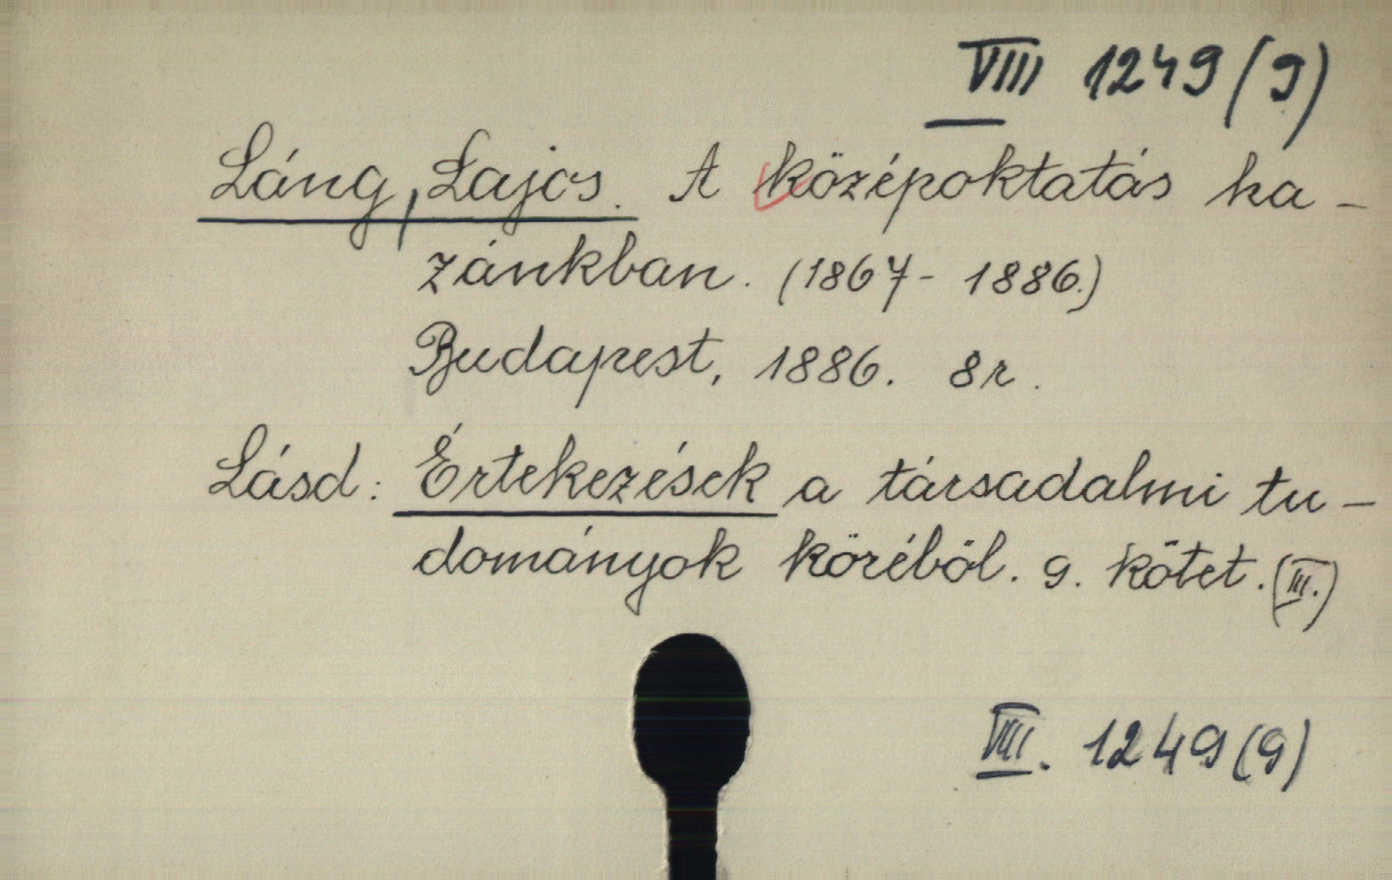 VIII 1249 (9)
Láng, Lajos. A középoktatás ha-
zánkban. (1867- 1886.)
Budapest, 1886. 8r.
Lásd: Értekezések a társadalmi tu-
dományok köréből. 9. kötet. (III.)
VIII. 1249 (9)